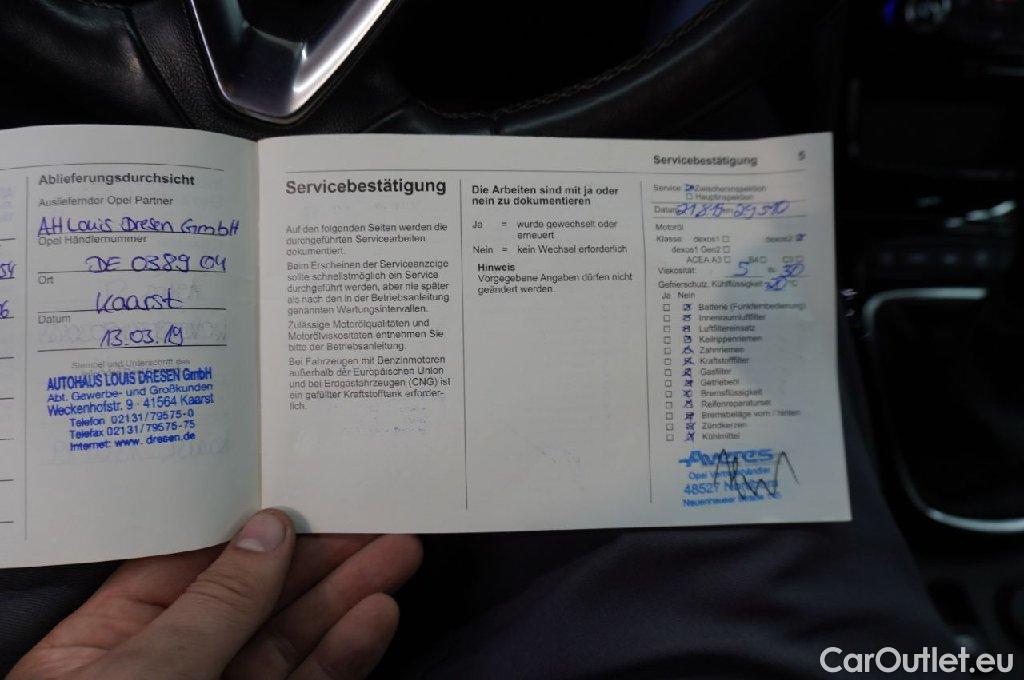 Ablieferungsdurchsicht
Ausliefernder Opel Partner
AH Louis Dresen GmbH
Opel Händlernummer
DE 0389 04
Ort
Kaarst
Datum
13.03.19
Stempel und Unterschrift des
AUTOHAUS LOUIS DRESEN GmbH
Abt. Gewerbe- und Großkunden
Weckenhofstr. 9 · 41564 Kaarst
Telefon 02131/79575-0
Telefax 02131/79575-75
Internet: www.dresen.de
Servicebestätigung
Auf den folgenden Seiten werden die
durchgeführten Servicearbeiten
dokumentiert.
Beim Erscheinen der Serviceanzeige
sollte schnellstmöglich ein Service
durchgeführt werden, aber nie später
als nach den in der Betriebsanleitung
genannten Wartungsintervallen.
Zulässige Motorölqualitäten und
Motorölviskositäten entnehmen Sie
bitte der Betriebsanleitung.
Bei Fahrzeugen mit Benzinmotoren
außerhalb der Europäischen Union
und bei Erdgasfahrzeugen (CNG) ist
ein gefüllter Kraftstofftank erforder-
lich.
Die Arbeiten sind mit ja oder
nein zu dokumentieren
Ja = wurde gewechselt oder
erneuert
Nein = kein Wechsel erforderlich
Hinweis
Vorgegebene Angaben dürfen nicht
geändert werden.
Servicebestätigung 5
Service: Zwischeninspektion
Hauptinspektion
Datum
Motoröl
Klasse: dexos1 dexos2
dexos1 Gen2
ACEA A3 B4 C3
Viskosität: 5 W- 30
Gefrierschutz, Kühlflüssigkeit °C
Ja Nein
Batterie (Funkfernbedienung)
Innenraumluftfilter
Luftfiltereinsatz
Keilrippenriemen
Zahnriemen
Kraftstofffilter
Gasfilter
Getriebeöl
Bremsflüssigkeit
Reifenreparaturset
Bremsbeläge vorn / hinten
Zündkerzen
Kühlmittel
Opel
48527
CarOutlet.eu